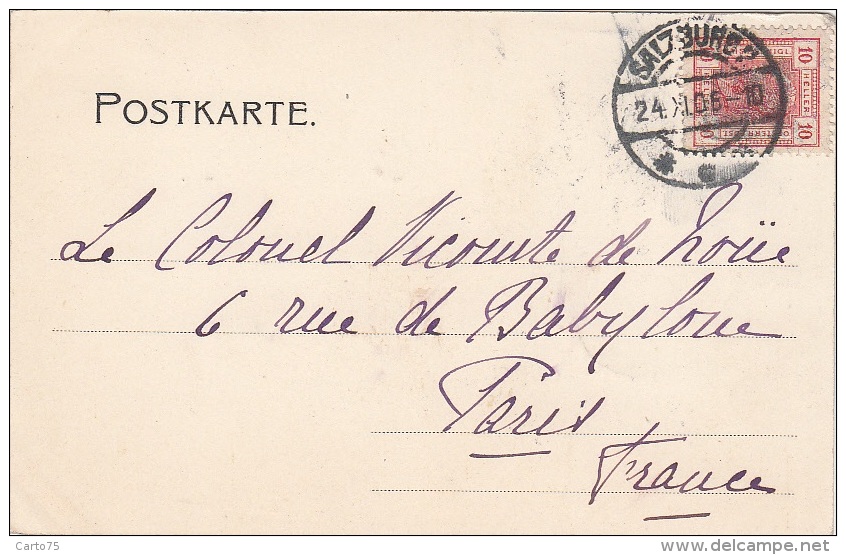 SALZBURG 2
24.XI.06-10
10 HELLER 10
POSTKARTE.
Le Colonel Vicomte de Noüe
6 rue de Babylone
Paris
France
Carto75
www.delcampe.net